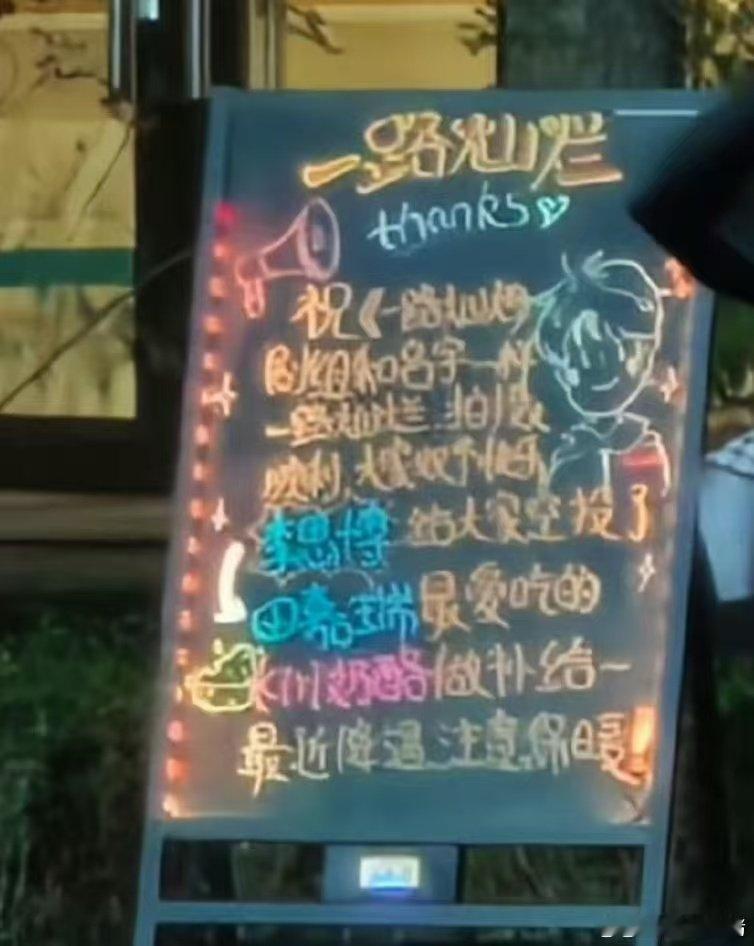 一路灿烂
thanks
祝《一路灿烂
剧组和名字一样
一路灿烂 拍摄
顺利,大家收工快乐
李思博 给大家空投了
田嘉瑞 最爱吃的
奶酪 做补给~
最近降温 注意保暖